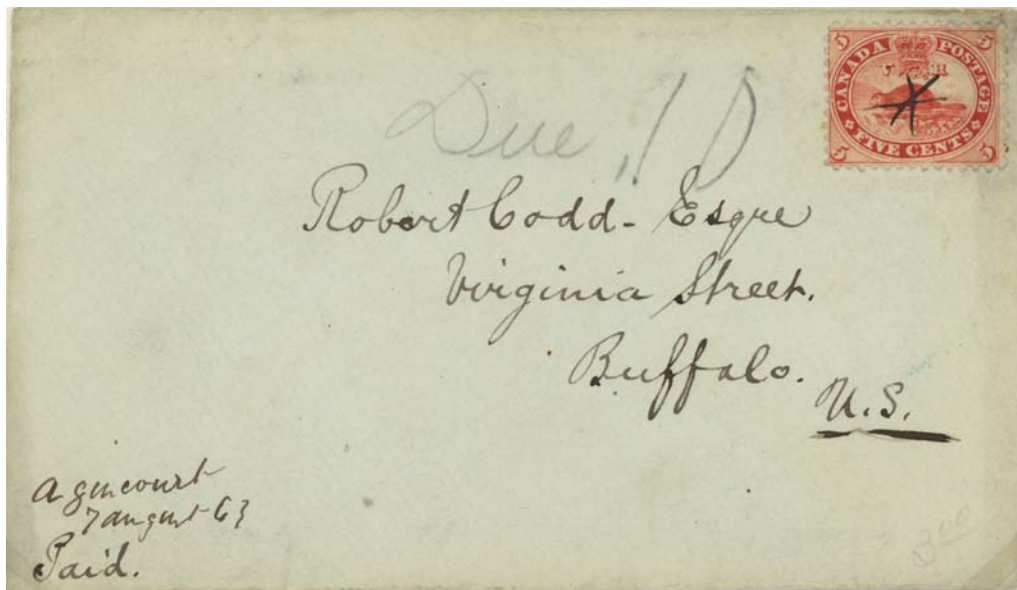 5 CANADA POSTAGE 5
V R
5 FIVE CENTS 5
Due 10
Robert Codd - Esqre
Virginia Street.
Buffalo.
U.S.
Agincourt
7 august 63
Paid.